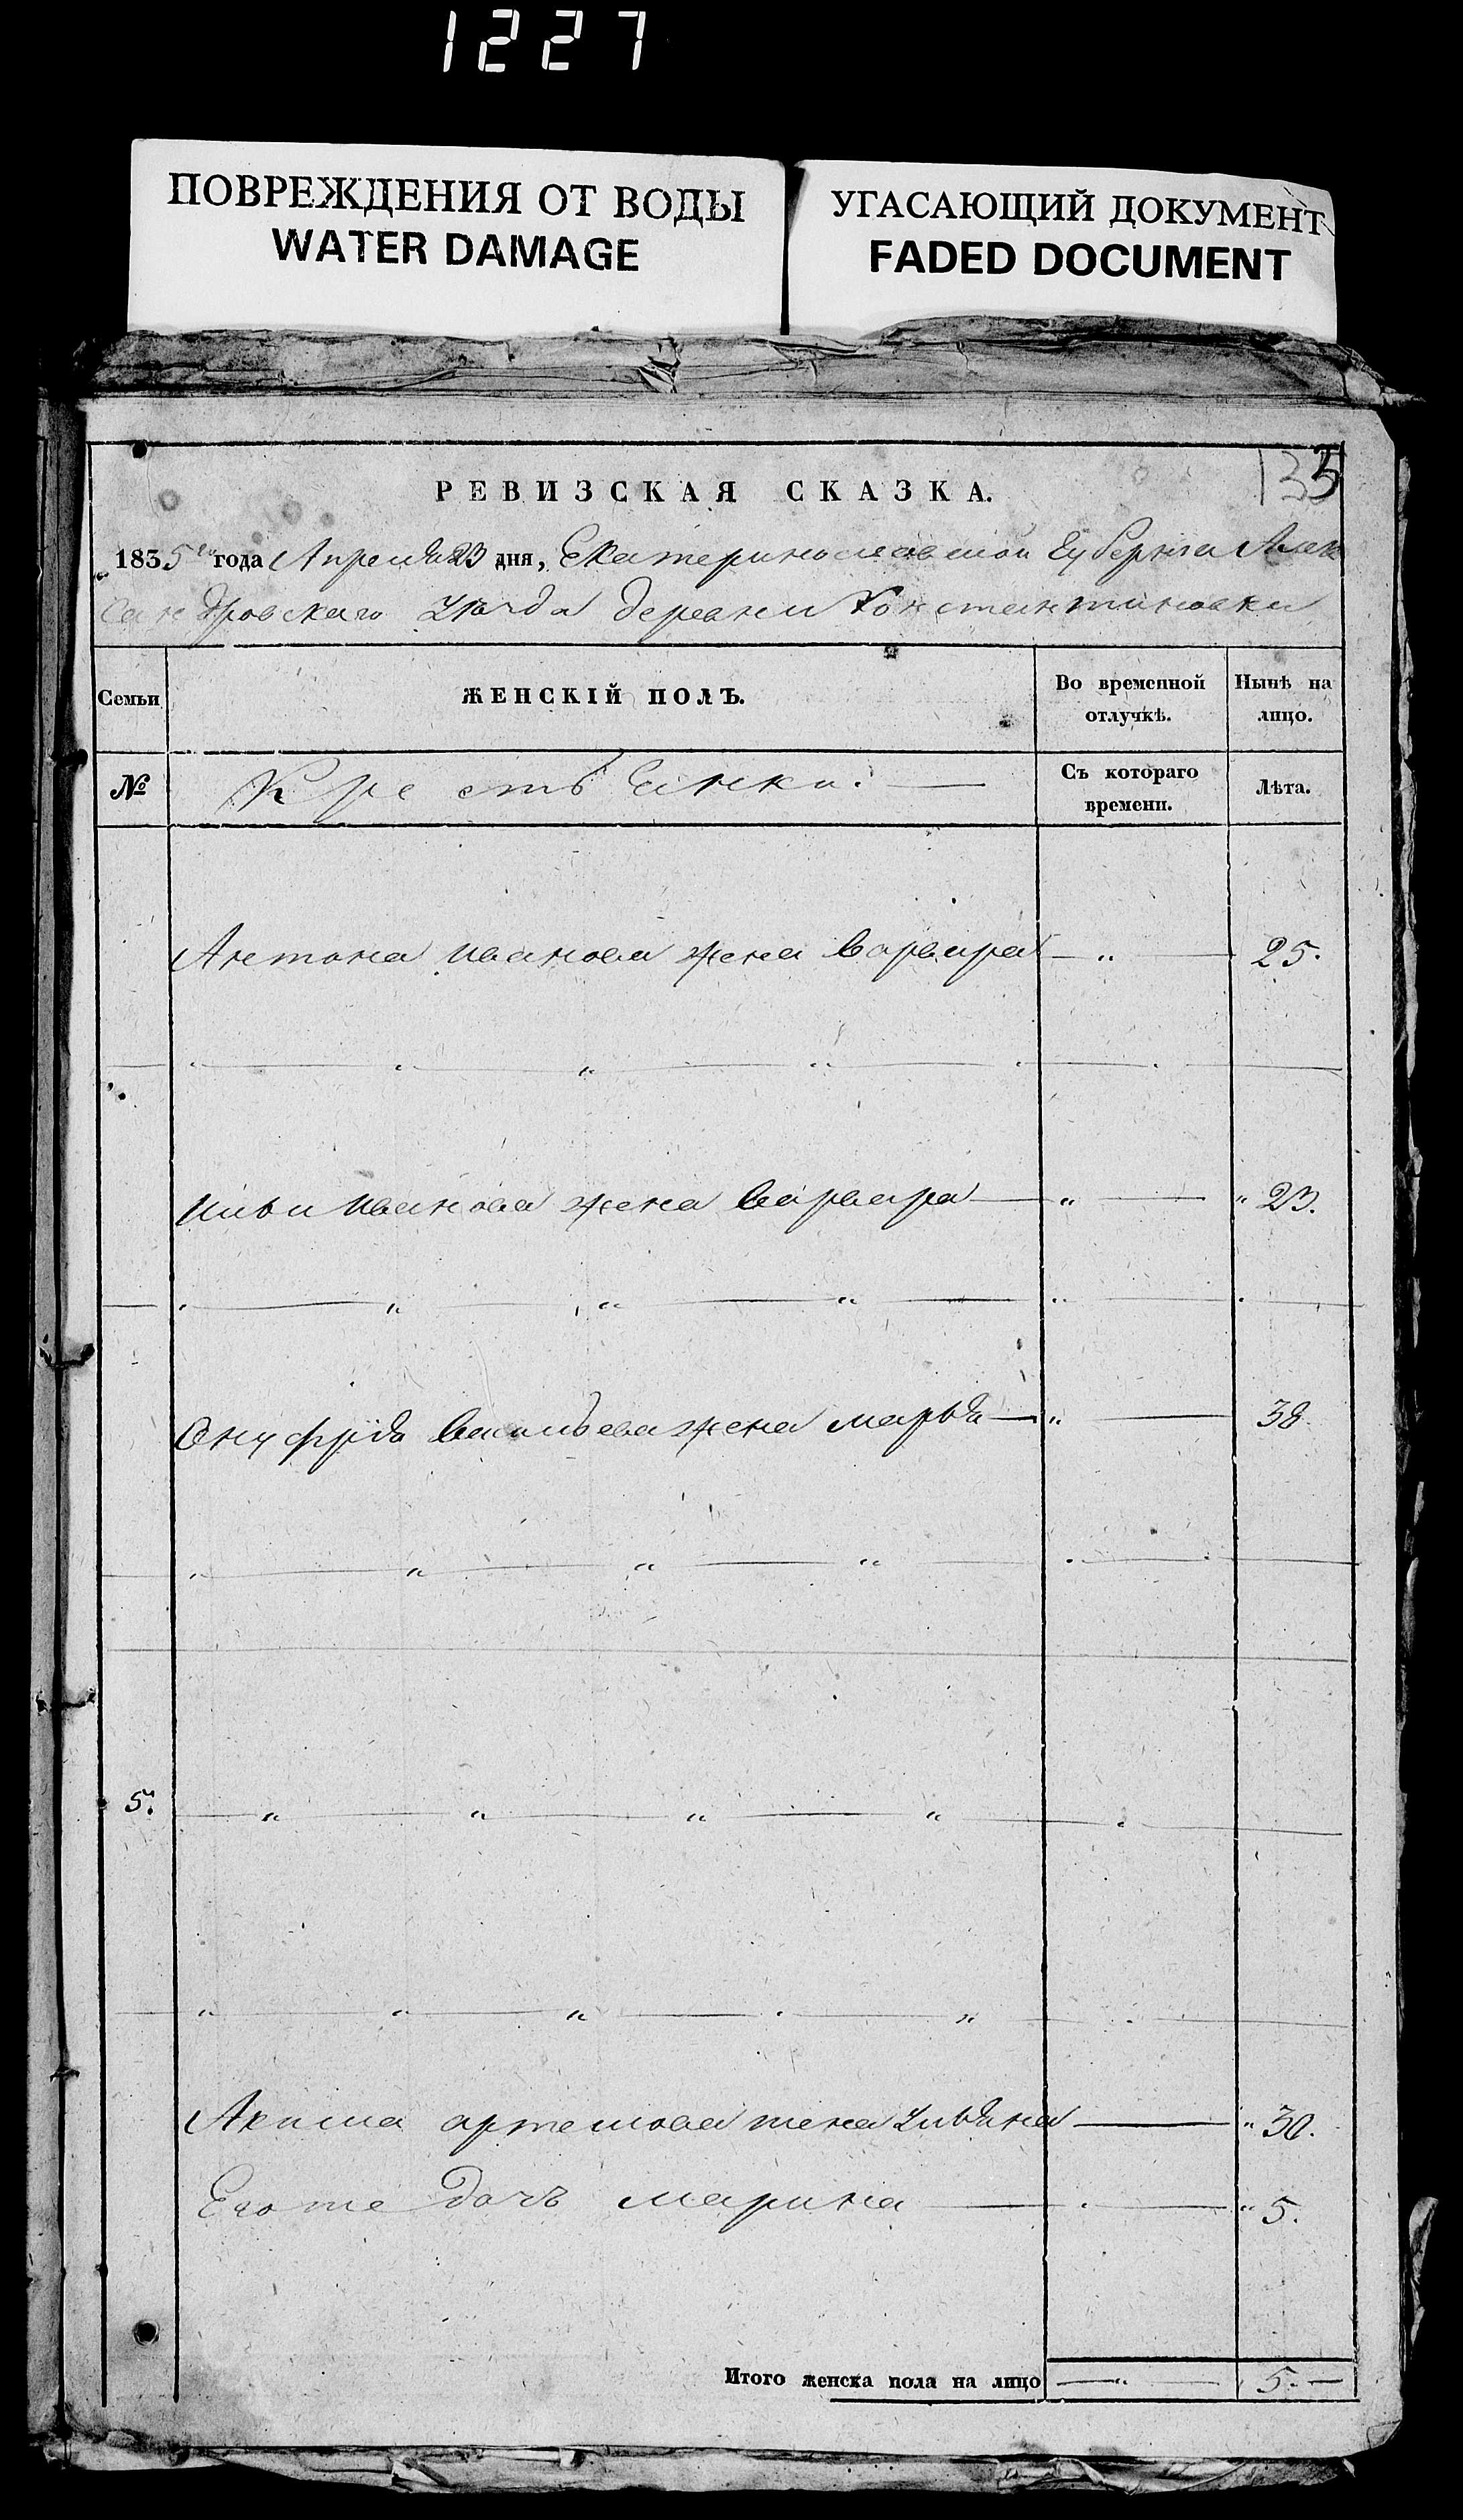 1227
ПОВРЕЖДЕНИЯ ОТ ВОДЫ
WATER DAMAGE
УГАСАЮЩИЙ ДОКУМЕНТ
FADED DOCUMENT
135
РЕВИЗСКАЯ СКАЗКА.
1835 года Апреля 23 дня, Екатеринославской Губернии Алек
сандровскаго Уезда деревни Константиновки
Семьи
ЖЕНСКІЙ ПОЛЪ.
Во временной отлучкѣ.
Нынѣ на лицо.
№
Крестьянки.
Съ котораго времени.
Лѣта.
Антона Иванова жена Варвара — " — 25.
Ильи Иванова жена Варвара — " — " 23.
Онуфрія Васильева жена Марья — " — 38.
5.
Акима Артемова жена Ульяна — " 30.
Его же дочь Марина — " 5.
Итого женска пола на лицо — " — 5. —